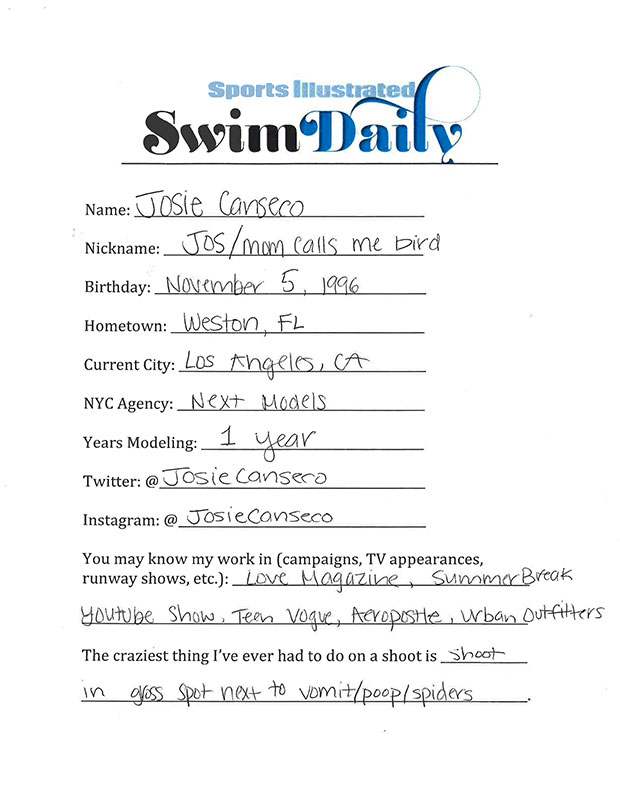 Sports Illustrated
Swim Daily
Name: Josie Canseco
Nickname: Jos/mom calls me bird
Birthday: November 5, 1996
Hometown: Weston, FL
Current City: Los Angeles, CA
NYC Agency: Next Models
Years Modeling: 1 year
Twitter: @ JosieCanseco
Instagram: @ JosieCanseco
You may know my work in (campaigns, TV appearances,
runway shows, etc.): Love Magazine, Summer Break
Youtube Show, Teen Vogue, Aeropostle, Urban Outfitters
The craziest thing I've ever had to do on a shoot is shoot
in gross spot next to vomit/poop/spiders.